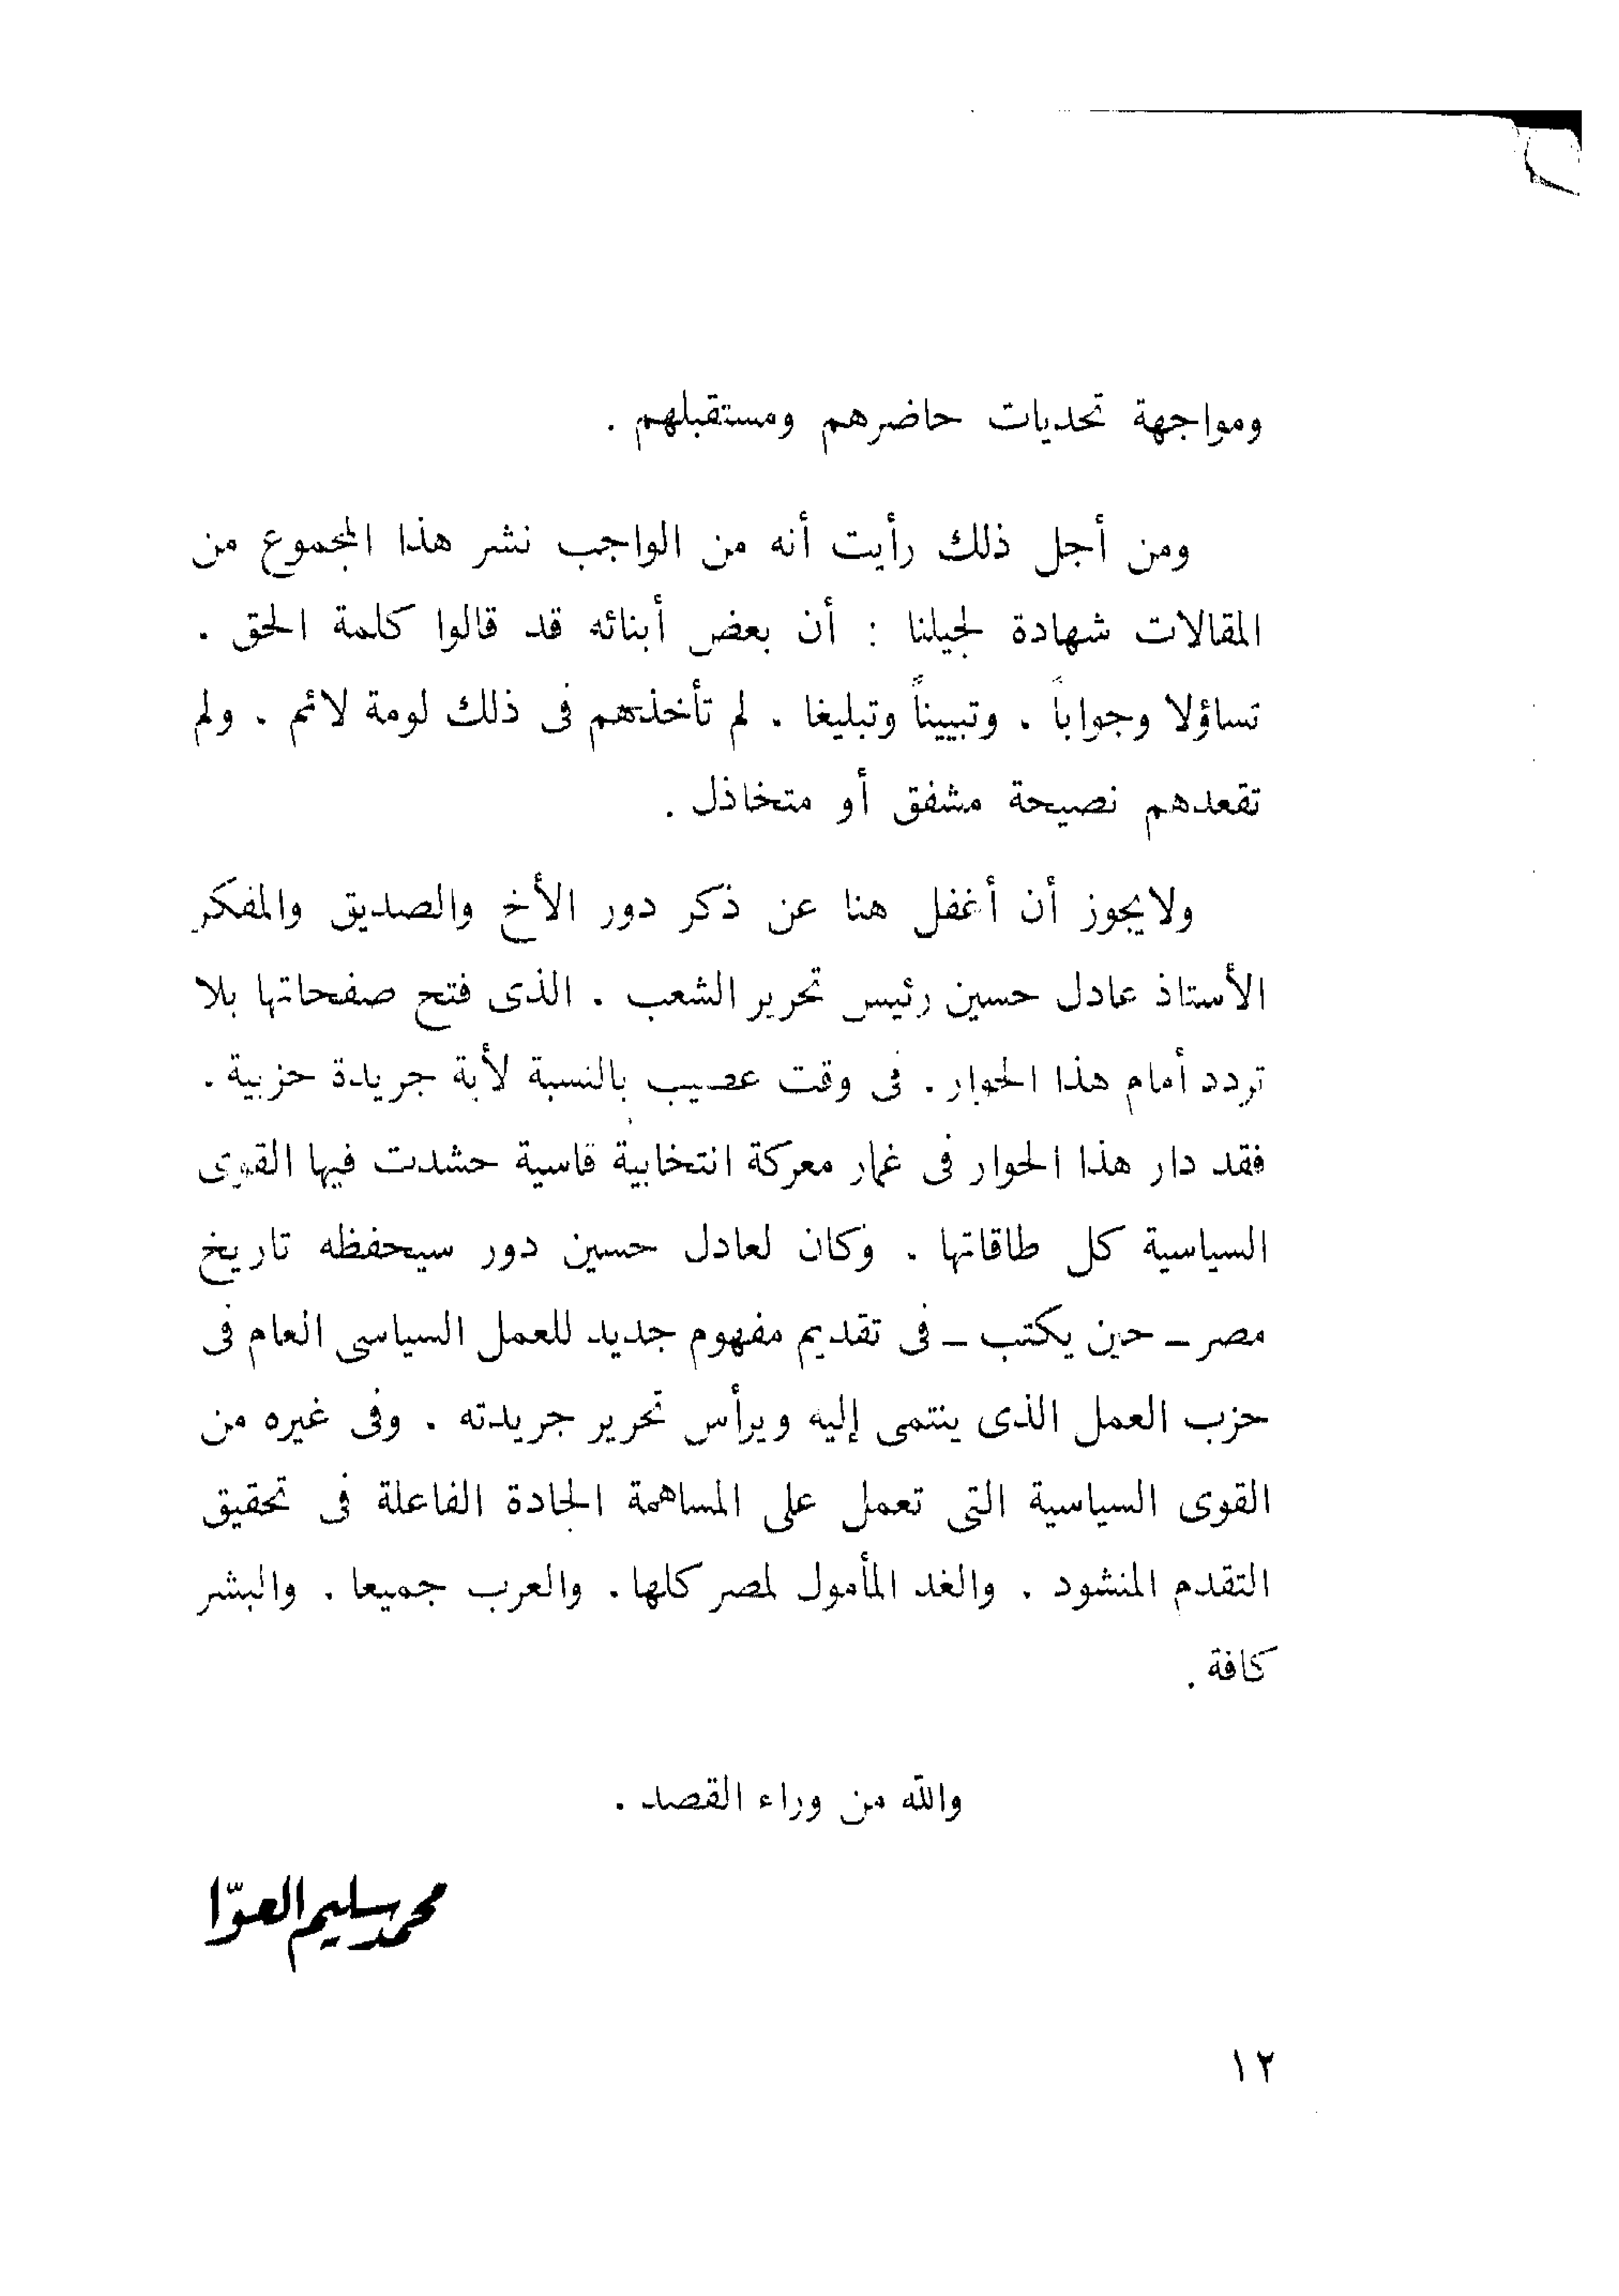 ومواجهة تحديات حاضرهم ومستقبلهم .
ومن أجل ذلك رأيت أنه من الواجب نشر هذا المجموع من
المقالات شهادة لجيلنا : أن بعض أبنائه قد قالوا كلمة الحق .
تساؤلا وجواباً . وتبييناً وتبليغا . لم تأخذهم فى ذلك لومة لائم . ولم
تقعدهم نصيحة مشفق أو متخاذل .
ولايجوز أن أغفل هنا عن ذكر دور الأخ والصديق والمفكر
الأستاذ عادل حسين رئيس تحرير الشعب . الذى فتح صفحاتها بلا
تردد أمام هذا الحوار . فى وقت عصيب بالنسبة لأية جريدة حزبية .
فقد دار هذا الحوار فى غمار معركة انتخابية قاسية حشدت فيها القوى
السياسية كل طاقاتها . وكان لعادل حسين دور سيحفظه تاريخ
مصر ــ حين يكتب ــ فى تقديم مفهوم جديد للعمل السياسى العام فى
حزب العمل الذى ينتمى إليه ويرأس تحرير جريدته . وفى غيره من
القوى السياسية التى تعمل على المساهمة الجادة الفاعلة فى تحقيق
التقدم المنشود . والغد المأمول لمصر كلها . والعرب جميعا . والبشر
كافة .
والله من وراء القصد .
محمد سليم العوّا
١٢